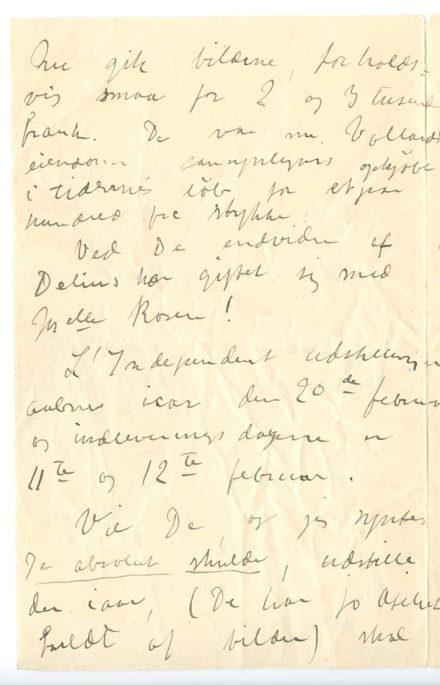 Nu gik bildene, forholds-
vis smaa for 2 og 3 tusend
frank. De var nu Vollards
eiendom
i tidernes löb for et par
hundred frc stykke
Ved De endvidere at
Delius har giftet sig med
Mselle Rosen!
L'Independent udstillingen
aabnes iaar den 20de februar
og indleveringsdagene er
11te og 12te februar.
Vil De, og jeg syntes
De absolut skulde, udstille
der iaar, (De har jo
fuldt af bilder) skal